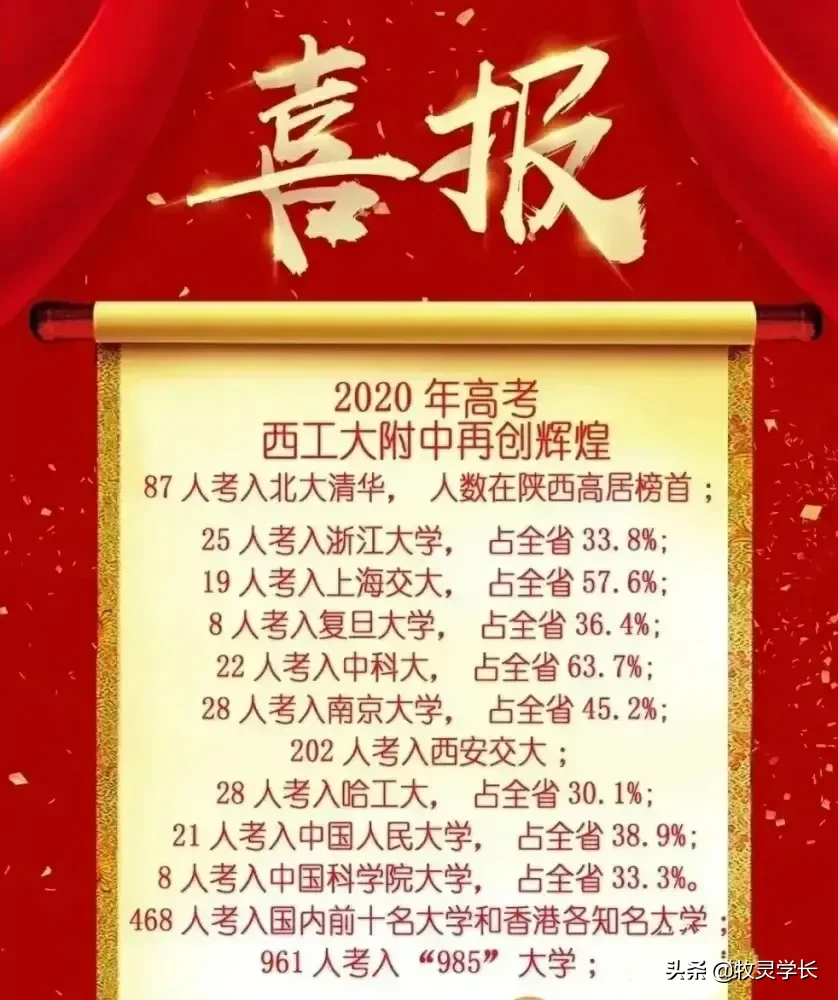 喜报
2020年高考
西工大附中再创辉煌
87人考入北大清华， 人数在陕西高居榜首；
25人考入浙江大学， 占全省33.8%；
19人考入上海交大， 占全省57.6%；
8人考入复旦大学， 占全省36.4%；
22人考入中科大， 占全省63.7%；
28人考入南京大学， 占全省45.2%；
202人考入西安交大；
28人考入哈工大， 占全省30.1%；
21人考入中国人民大学， 占全省38.9%；
8人考入中国科学院大学， 占全省33.3%。
468人考入国内前十名大学和香港各知名大学；
961人考入“985”大学；
头条 @牧灵学长